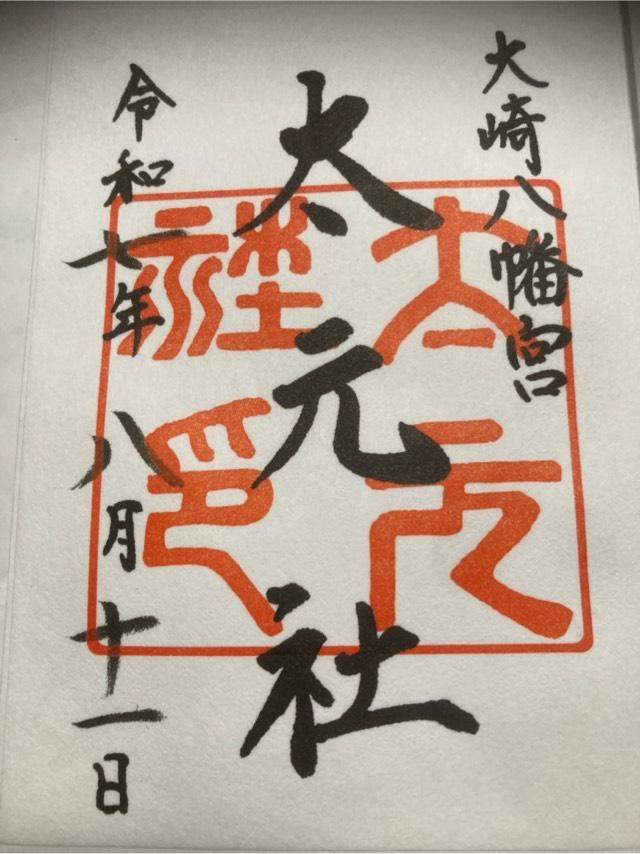 大崎八幡宮
太元社
太元社印
令和七年八月十一日